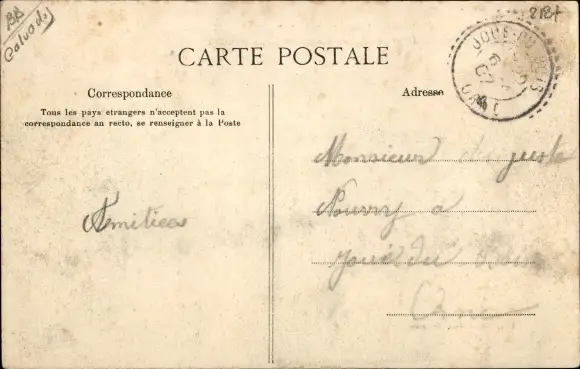 BB
Calvados
CARTE POSTALE
Correspondance
Tous les pays etrangers n'acceptent pas la
correspondance an recto, se renseigner à la Poste
Amitiées
Adresse
JOUÉ-DU-BOIS
ORNE
07
Monsieur
a
Joué du Bois
Orne